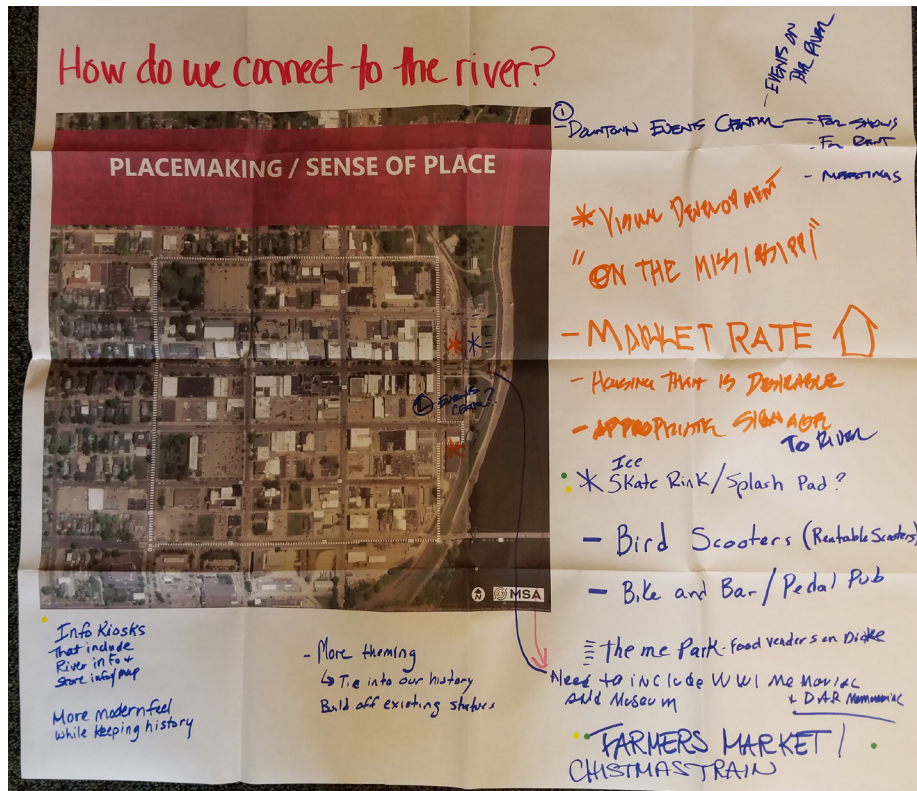 How do we connect to the river?
PLACEMAKING / SENSE OF PLACE
- EVENTS ON
THE RIVER
①
- DOWNTOWN EVENTS CENTER - FOR SHOWS
- FOR RENT
- MEETINGS
* VISUAL DEVELOPMENT
"ON THE MISSISSIPPI"
- MARKET RATE
- HOUSING THAT IS DESIRABLE
- APPROPRIATE SIGNAGE
TO RIVER
* Ice
Skate Rink / Splash Pad?
- Bird Scooters (Rentable Scooters)
- Bike and Bar / Pedal Pub
Theme Park - Food Venders on Dicke
Need to include WWI Memorial
and Museum
& DAR Memmorial
FARMERS MARKET /
CHISTMAS TRAIN
* * =
① EVENTS
CENTER?
*
N MSA
Info Kiosks
That include
River info &
Store info/map
More modern feel
while keeping history
- More theming
↳ Tie into our history
Build off existing statues